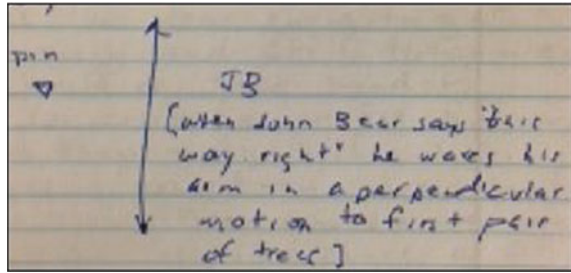 pin
JB
[when John Bear says "this
way right" he waves his
arm in a perpendicular
motion to first pair
of trees]